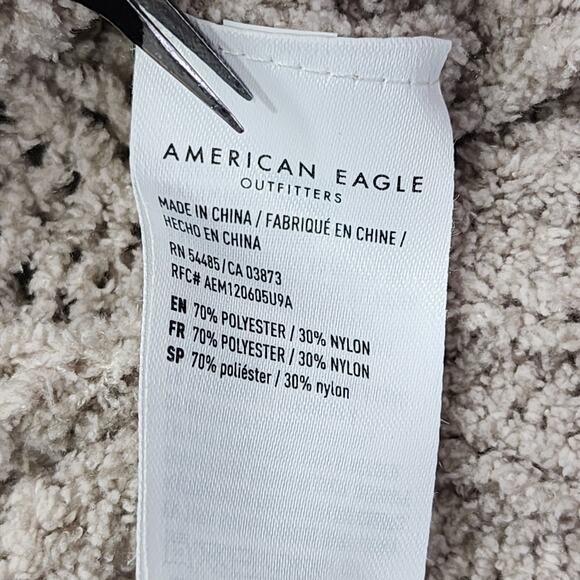 AMERICAN EAGLE
OUTFITTERS
MADE IN CHINA / FABRIQUÉ EN CHINE /
HECHO EN CHINA
RN 54485/CA 03873
RFC# AEM120605U9A
EN 70% POLYESTER / 30% NYLON
FR 70% POLYESTER / 30% NYLON
SP 70% poliéster / 30% nylon